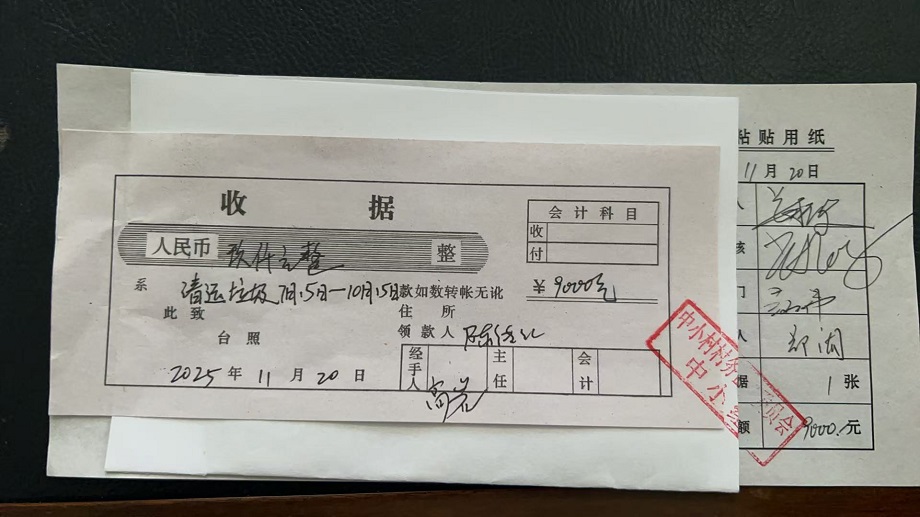 粘贴用纸
11月20日
收 据
会计科目
收
付
人民币 玖仟元整 整
系 清运垃圾7月15日—10月15日款如数转帐无讹 ¥9000元
此致 住所
台照 领款人
经手人 主任 会计
2025年11月20日
中小村村务
员会
中小
核
门
人
据 1张
额 9000.元